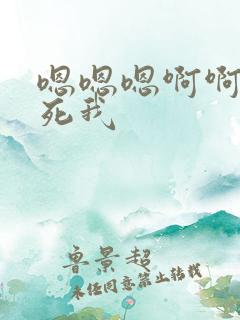 嗯嗯嗯啊啊
死我
鲁景超
未经同意禁止转载